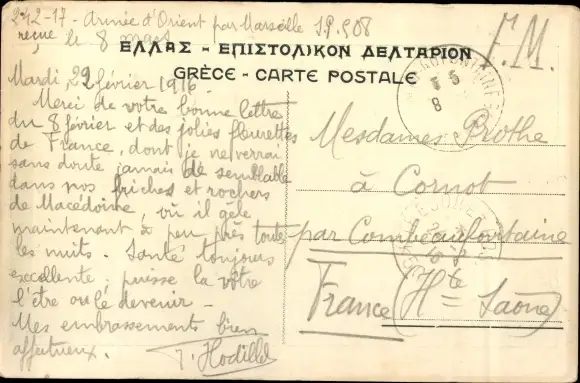 242-17 - Armée d'Orient par Marseille S.P. 508
reçue le 8 mars
F.M.
ΕΛΛΑΣ - ΕΠΙΣΤΟΛΙΚΟΝ ΔΕΛΤΑΡΙΟΝ
GRÈCE - CARTE POSTALE
Mardi, 22 février 1916.
Merci de votre bonne lettre
du 8 février et des jolies fleurettes
de France, dont je ne verrai
sans doute jamais de semblable
dans nos friches et rochers
de Macédoine, où il gèle
maintenant à peu près toutes
les nuits. Santé toujours
excellente; puisse la vôtre
l'être ou le devenir -
Mes embrassements bien
affectueux.
Mesdames Prothe
à Cornot
par Combeaufontaine
France (Hte Saône)